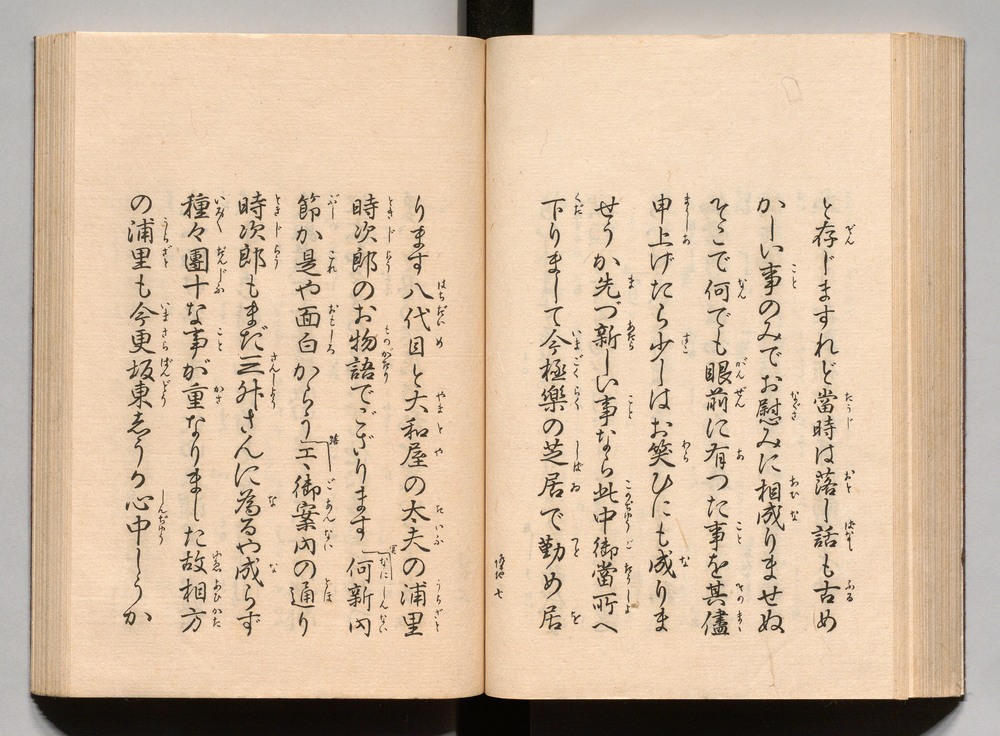 と存じますれど當時は落し話も古め
かしい事のみでお慰みに相成りませぬ
そこで何でも眼前に有つた事を其儘
申上げたら少しはお笑ひにも成りま
せうか先づ新しい事なら此中御當所へ
下りまして今極樂の芝居で勤め居
ります八代目と大和屋の太夫の浦里
時次郎のお物語でござります「何新内
節か是や面白からう「エヽ御案内の通り
時次郎もまだ三升さんに為るや成らず
種々團十な事が重なりました故相方
の浦里も今更坂東しうか心中しうか